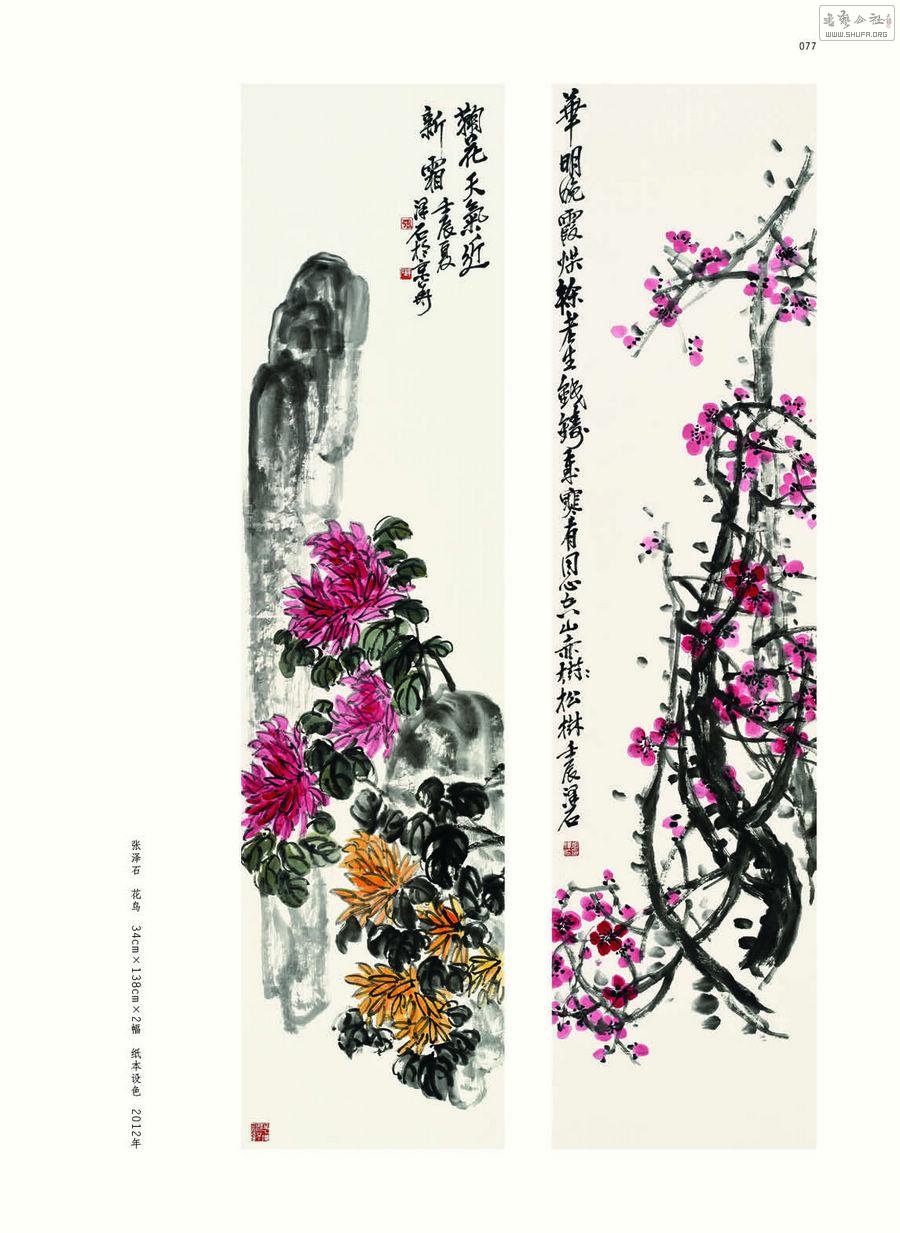 书艺公社
WWW.SHUFA.ORG
077
華明晚霞爛榦老生鐵鑄耐寒有同心空山赤樹松樹壬辰澤石
鞠花天氣近
新霜壬辰夏
澤石於京華
张泽石 花鸟 34cm×138cm×2幅 纸本设色 2012年